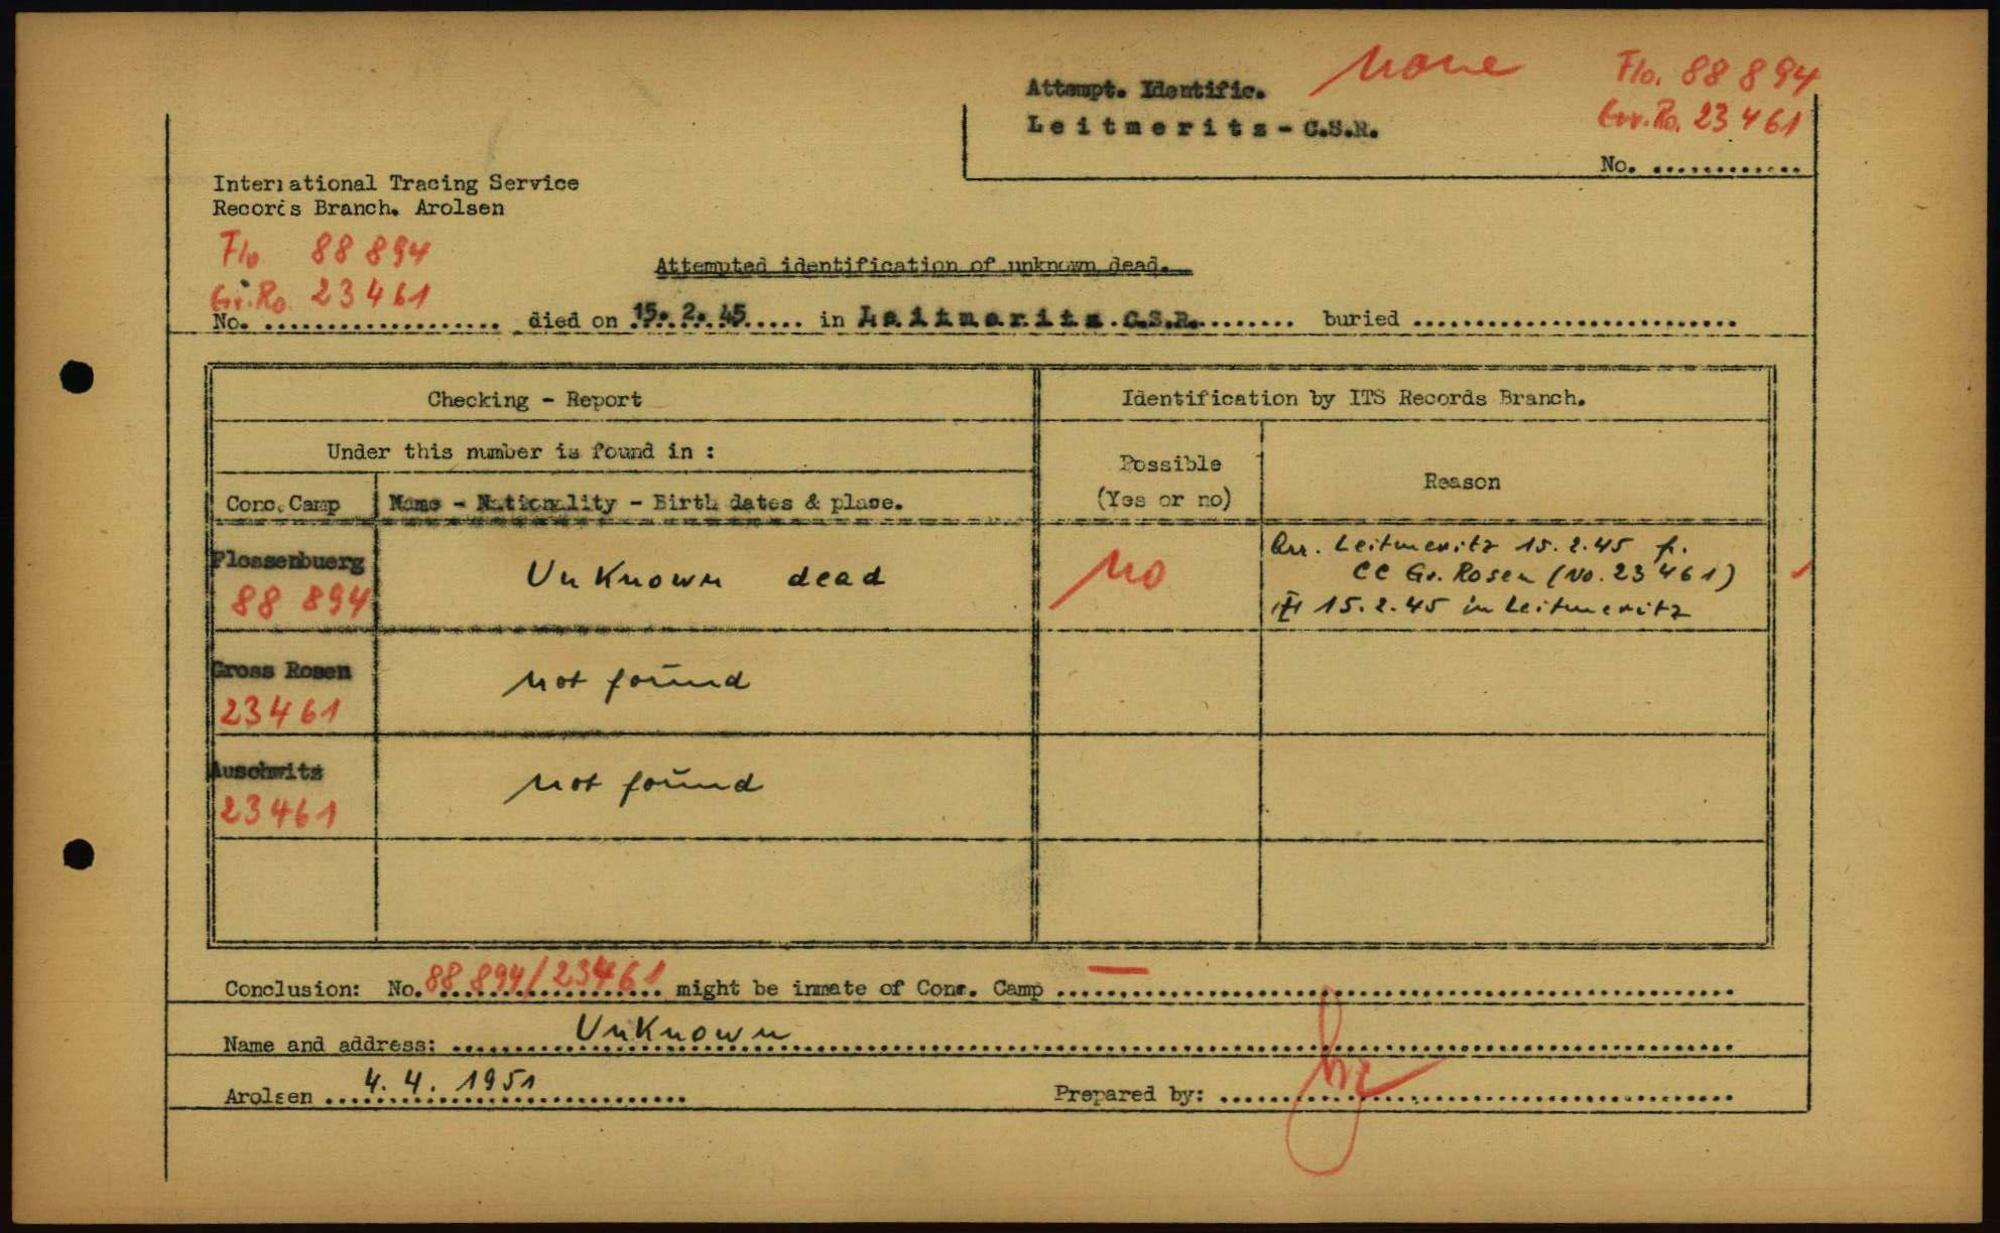 Attempt. Identific. none Flo. 88 894
Leitmeritz - C.S.R. Grr.Ro. 23 461
No. ............
International Tracing Service
Records Branch. Arolsen
Flo 88 894
Gr.Ro. 23 461
Attempted identification of unknown dead.
No. .................... died on 15. 2. 45 ..... in Leitmeritz. C.S.R. ........ buried ...........................
Checking - Report Identification by ITS Records Branch.
Under this number is found in :
Possible
(Yes or no)
Reason
Conc. Camp Name - Nationality - Birth dates & place.
Flossenbuerg
88 894
Unknown dead
no
Arr. Leitmeritz 15.2.45 f.
CC Gr. Rosen (No. 23 461)
15.2.45 in Leitmeritz
Gross Rosen
23461
not found
Auschwitz
23461
not found
Conclusion: No. 88 894/23461 might be inmate of Conc. Camp — ..........................................
Name and address: Unknown
Arolsen 4. 4. 1951 Prepared by: ..........................................